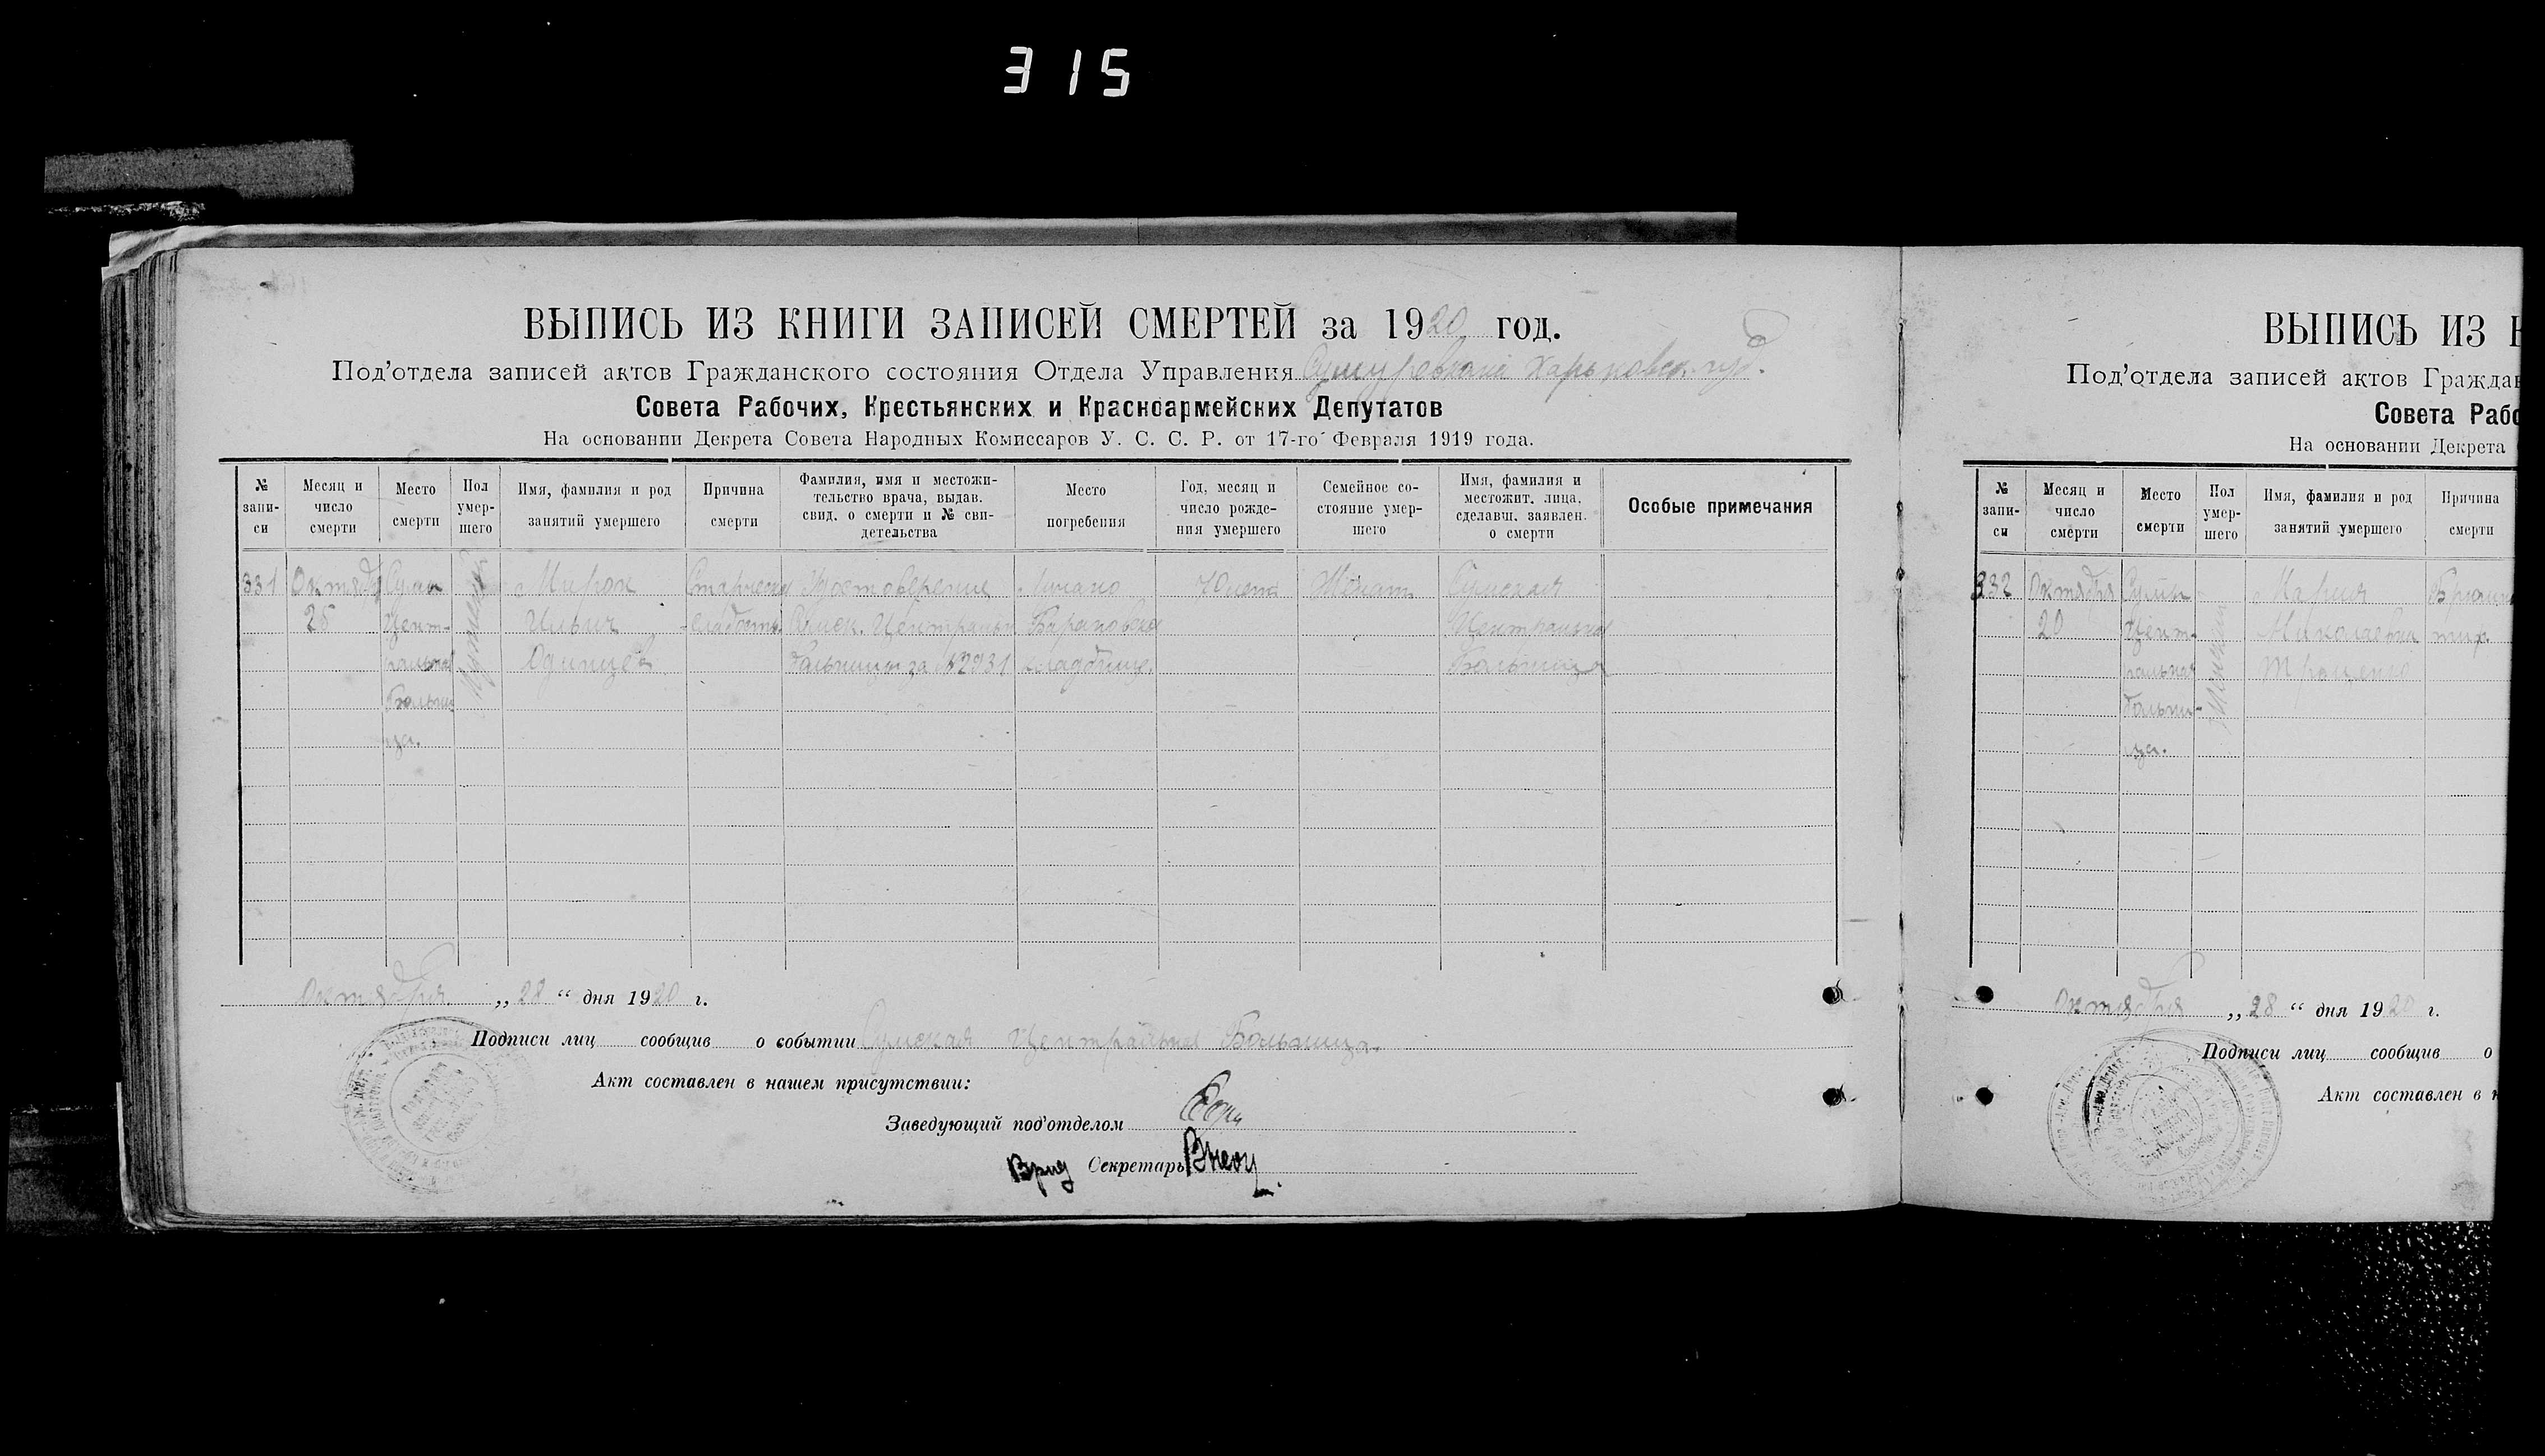 315
ВЫПИСЬ ИЗ КНИГИ ЗАПИСЕЙ СМЕРТЕЙ за 1920 год.
Под'отдела записей актов Гражданского состояния Отдела Управления Харьковск. губ.
Совета Рабочих, Крестьянских и Красноармейских Депутатов
На основании Декрета Совета Народных Комиссаров У. С. С. Р. от 17-го Февраля 1919 года.
№ запи- си
Месяц и число смерти
Место смерти
Пол умер- шего
Имя, фамилия и род занятий умершего
Причина смерти
Фамилия, имя и местожи- тельство врача, выдав. свид. о смерти и № сви- детельства
Место погребения
Год, месяц и число рожде- ния умершего
Семейное со- стояние умер- шего
Имя, фамилия и местожит. лица, сделавш. заявлен. о смерти
Особые примечания
331
Октября
Сумы
Цент-
ральная
Больни
ца.
Мирон
Ильич
Одинцев
Старческая
слабость.
Удостоверение
Сумск. Централь
больницы за №2931
Барановское
кладбище.
Женат
Сумская
Центральная
Больница
Октября „28“ дня 1920 г.
Подписи лиц сообщив о событии Сумская Центральная Больница.
Акт составлен в нашем присутствии:
Заведующий под'отделом
Врид Секретарь
ВЫПИСЬ ИЗ
Под'отдела записей актов Граждан
Совета Рабо
На основании Декрета
№ запи- си
Месяц и число смерти
Место смерти
Пол умер- шего
Имя, фамилия и род занятий умершего
Причина смерти
332
Октября
20
Сумы
Цент-
ральная
больни-
ца.
Мария
Николаевна
тиф
Октября „28“ дня 1920 г.
Подписи лиц сообщив о
Акт составлен в н